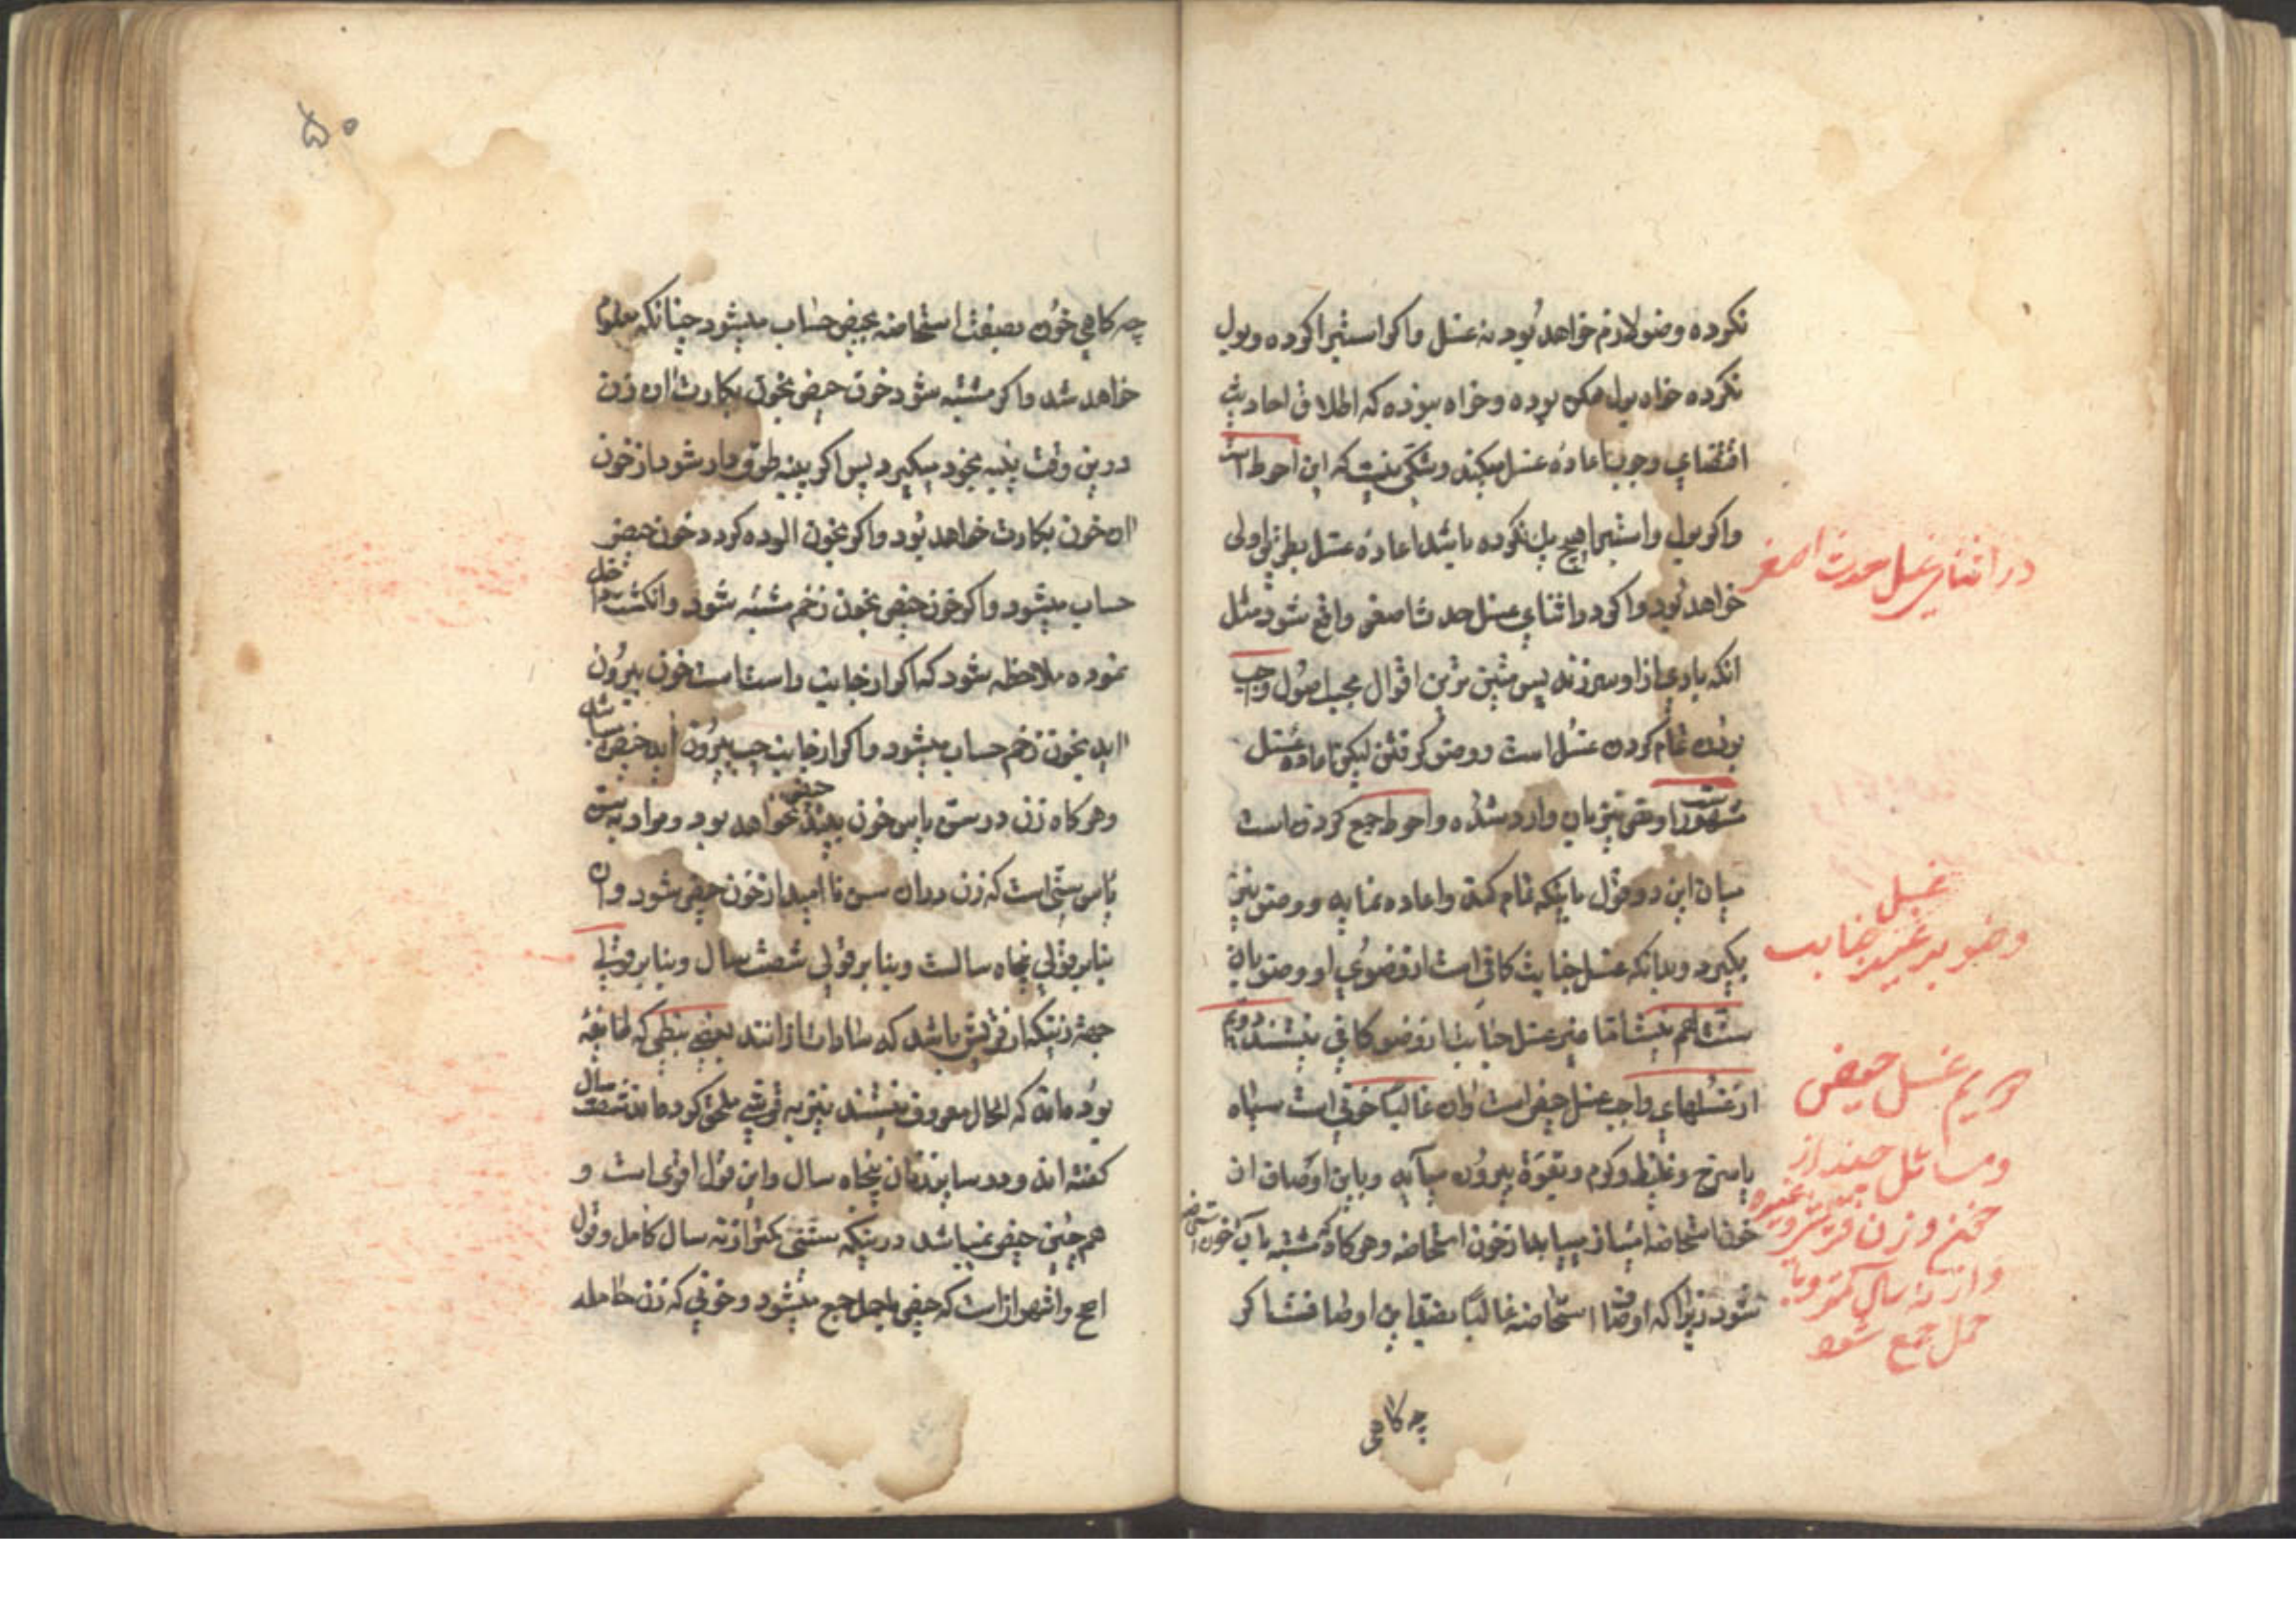 نکرده وضو لازم خواهد بود نه غسل و اکر استبرا کرده و بول
نکرده خواه بول ممکن بوده و خواه نبوده که اطلاق احادیث
اقتضای وجوب اعاده غسل میکند و شکی نیست که این احوط است
و اکر بول و استبرا هیچ یک نکرده باشد اعاده غسل بطریق اولی
خواهد بود و اکر در اثنای غسل حدث اصغر واقع شود مثل
انکه بادی از او سر زند پس متین ترین اقوال بحسب اصول واجب
بودن تمام کردن غسل است و وضو کرفتن لیکن اعاده غسل
مشهور است و نصی نیز بان وارد شده و احوط جمع کردن است
میان این دو قول باینکه تمام کند و اعاده نماید و وضو نیز
بکیرد و بدانکه غسل جنابت کافی است از وضوی او و وضو بان
سنت هم نیست اما غیر غسل جنابت از وضو کافی نیستند دویم
از غسلهای واجب غسل حیض است و ان غالبا خونی است سیاه
یا سرخ و غلیظ و کرم و بقوة بیرون می آید و باین اوصاف از
خون استحاضه امتیاز می یابد از خون استحاضه و هرکاه مشتبه بآن خون استحاضه
شود زیرا که اوصاف استحاضه غالبا بضد این اوصاف است اکر
چه کاهی
در اثنای غسل حدث اصغر
غسل
وضو بر غیر جنابت
دویم غسل حیض
و مسائل چند از
حیض و زن قرشیه و غیره
و از نه سال کمتر و با
حمل جمع شود
۵۰
چه کاهی خون بصفت استحاضه بحیض حساب میشود چنانکه معلوم
خواهد شد و اکر مشتبه شود خون حیض بخون بکارت ان زن
درین وقت پنبه بخود میکیرد پس اکر پنبه طوق دار شود از خون
ان خون بکارت خواهد بود و اکر بخون الوده کردد خون حیض
حساب میشود و اکر خون حیض بخون زخم مشتبه شود و انکشت داخل
نموده ملاحظه شود که اکر از جانب راست است خون بیرون
اید بخون زخم حساب میشود و اکر از جانب چپ بیرون اید حیض باشد
و هرکاه زن در سن یاس خون بیند حیض نخواهد بود و مراد بسن
یاس سنی است که زن دران سن نا امید از خون حیض شود و ان
بنابر قولی پنجاه سالست و بنابر قولی شصت سال و بنابر قولی
جهة زنیکه از قریش باشد که سادات از انند یعنی نبطی که طایفهٔ
بوده اند که الحال معروف نیستند نیز به قرشی ملحق کرده اند شصت سال
کفته اند و در سایر زنان پنجاه سال و این قول اقوی است و
هم چنین حیض نمیباشد در زنیکه سنش کمتر از نه سال کامل و قول
اصح و اشهر انست که حیض با حمل جمع میشود و خونی که زن حامله